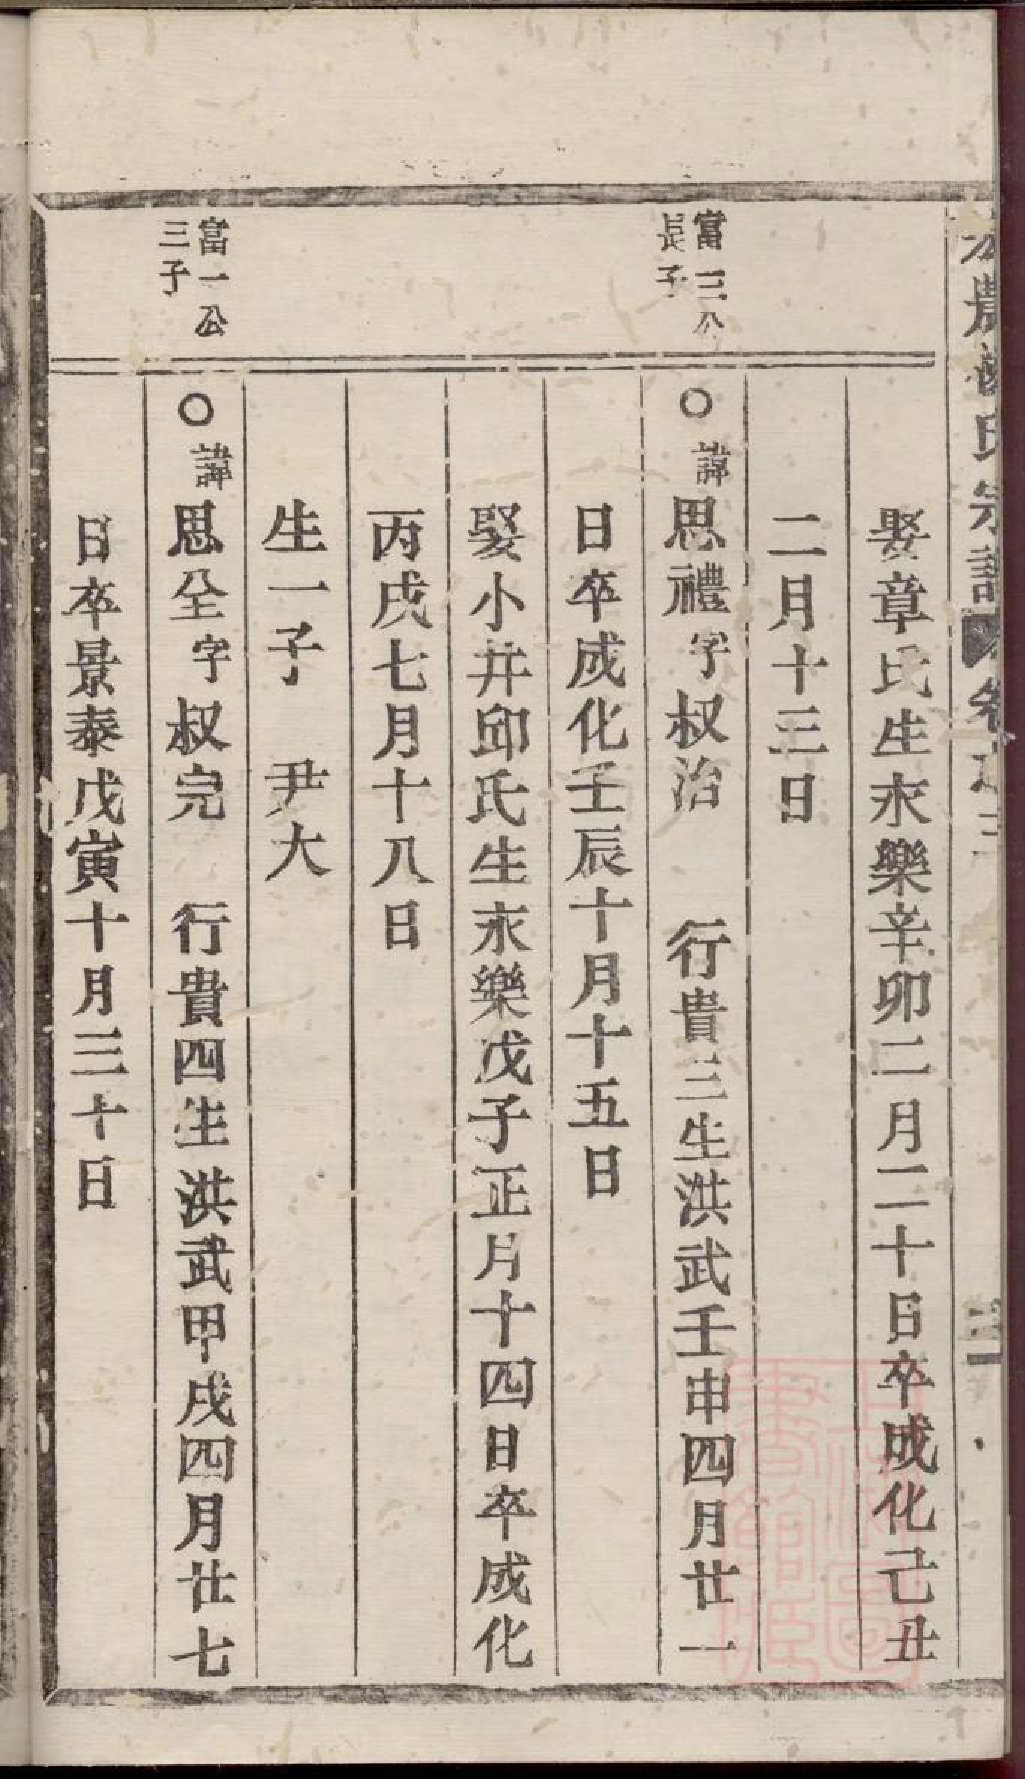 農
氏宗譜
卷之三
娶章氏生永樂辛卯二月二十日卒成化己丑
二月十三日
富三公
長子
○諱思禮字叔治　行貴三生洪武壬申四月廿一
日卒成化壬辰十月十五日
娶小井邱氏生永樂戊子正月十四日卒成化
丙戌七月十八日
生一子　尹大
富一公
三子
○諱思全字叔完　行貴四生洪武甲戌四月廿七
日卒景泰戊寅十月三十日